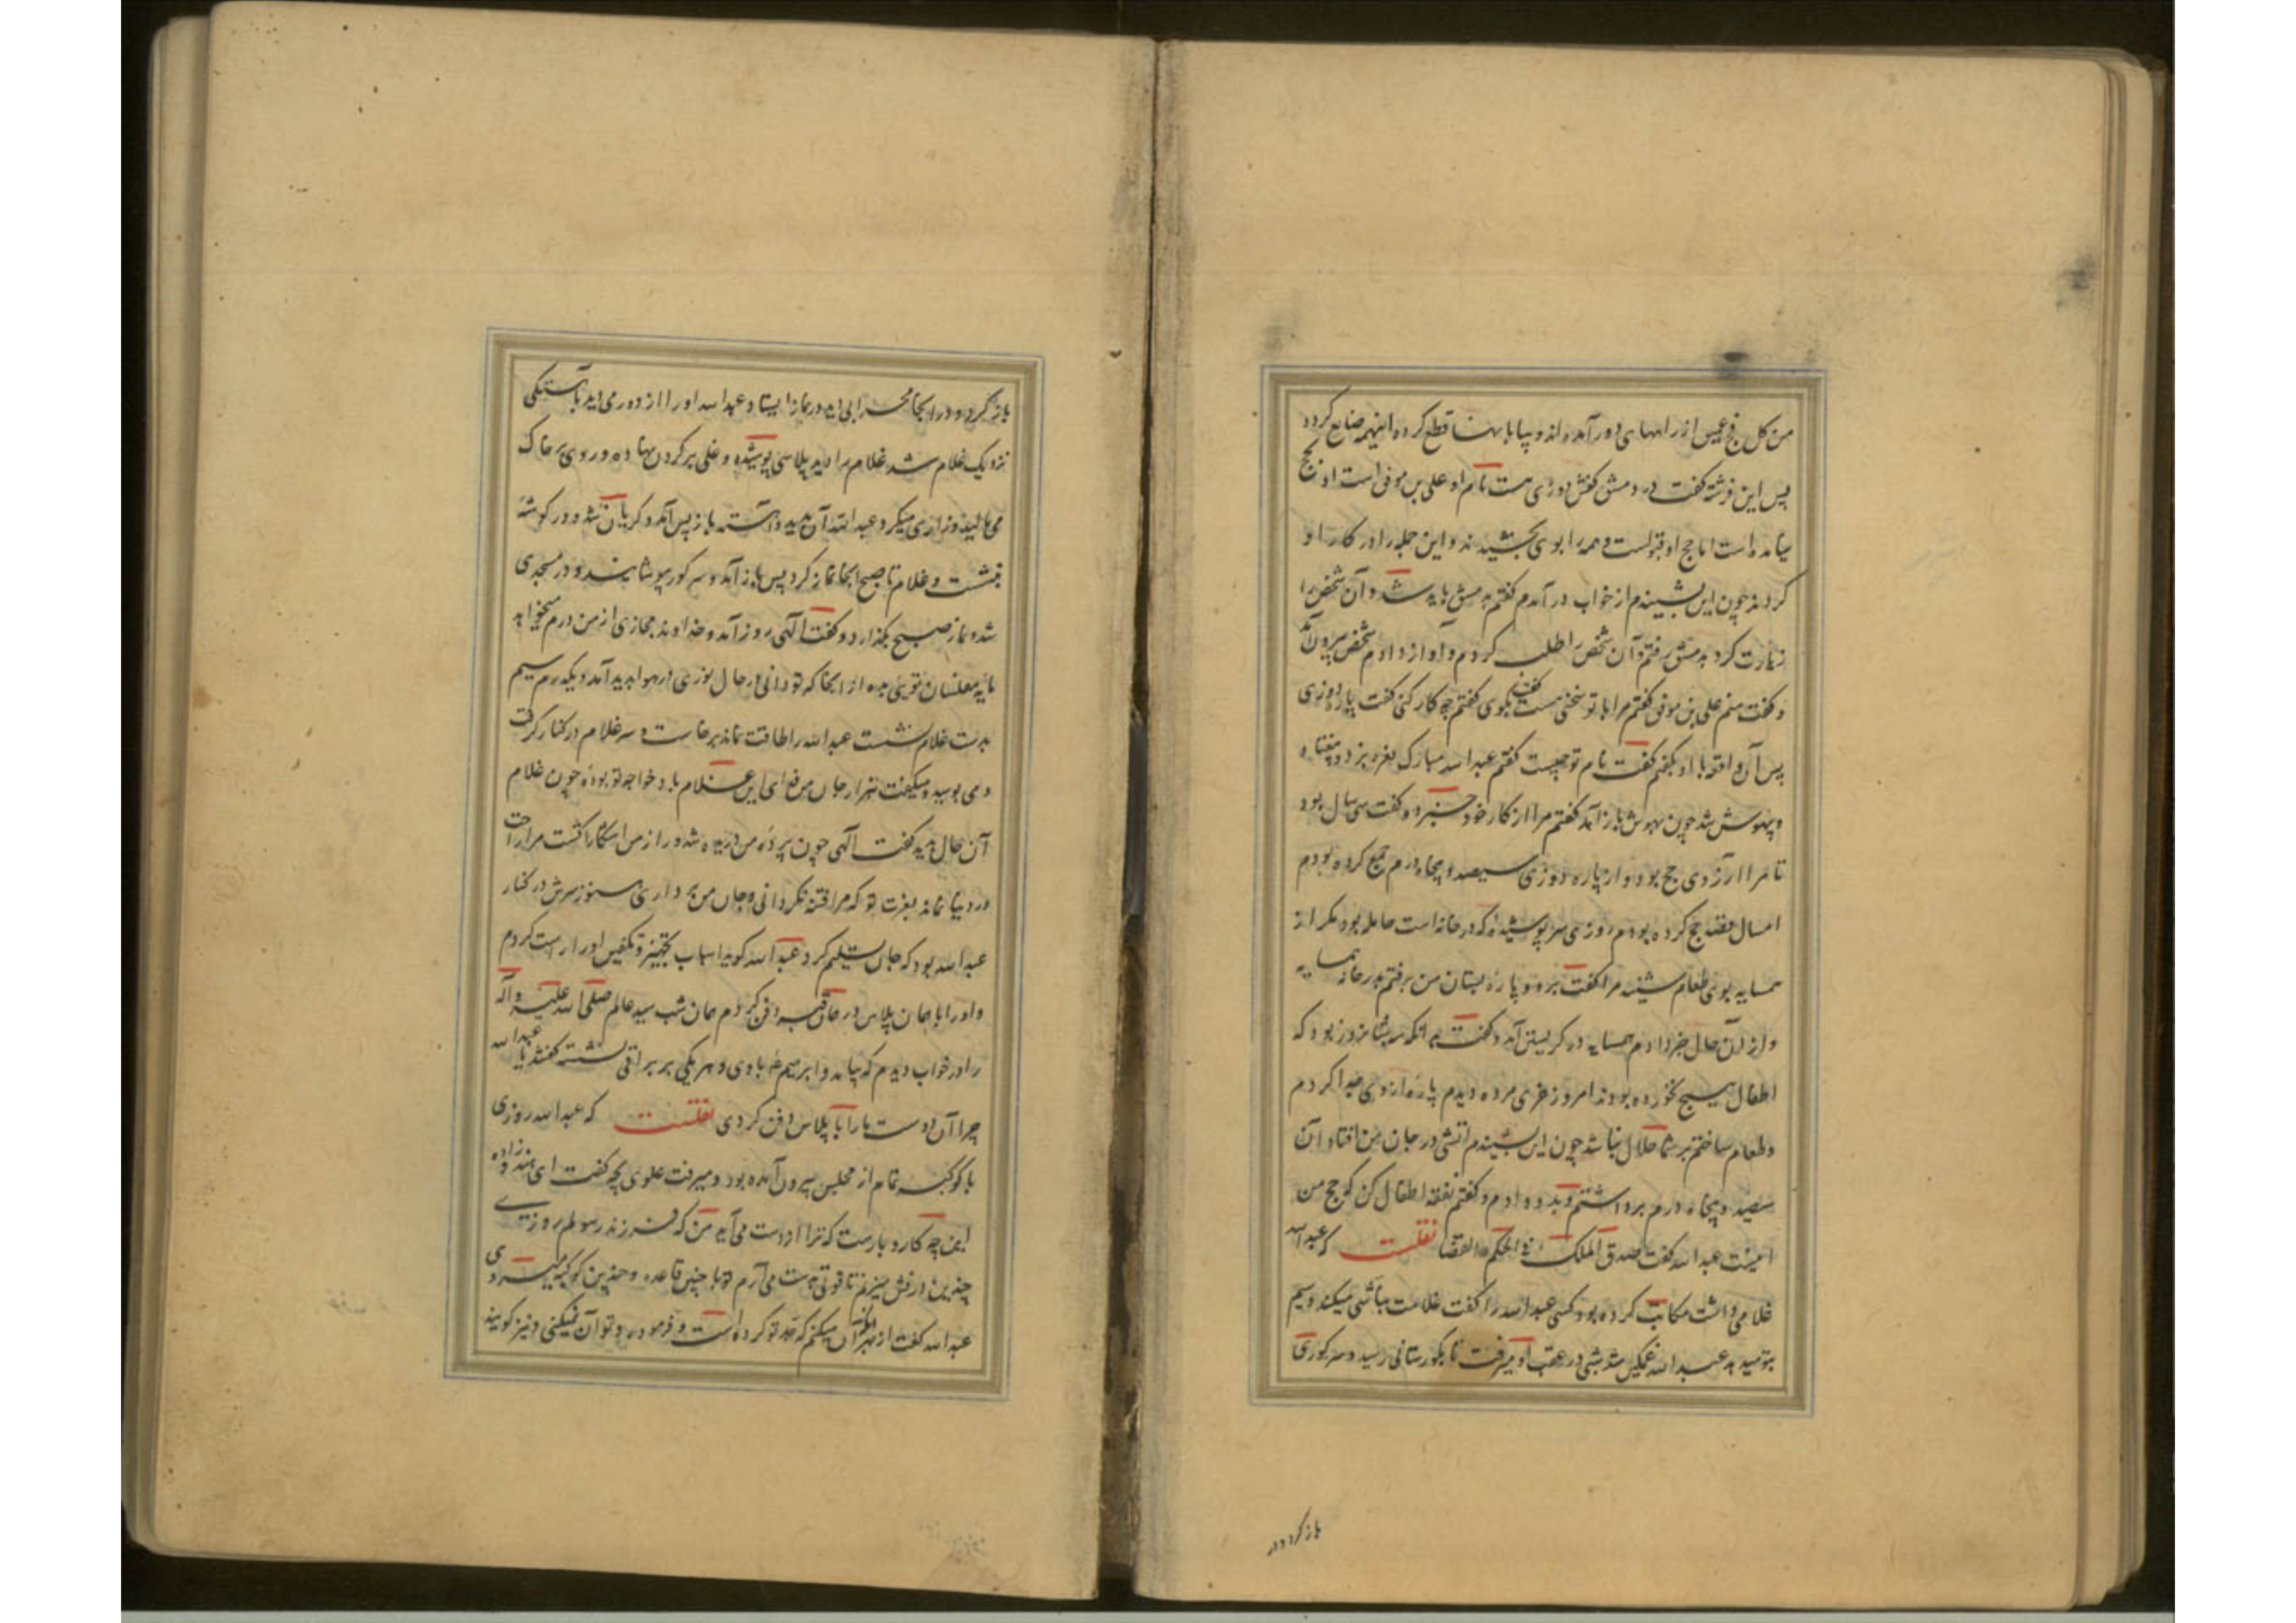 من کل فج عمیق از راههای دور آمده‌اند و بیابانها قطع کرده اینهمه ضایع گردد
پس این فرشته گفت در دمشق کفش دوزی هست نام او علی بن موفق است او بحج
نیامده است اما حج او قبولست و همه را بوی بخشیدند و این جمله را در کار او
کردند چون این بشنیدم از خواب در آمدم گفتم بدمشق باید شد و آن شخص را
زیارت کرد بدمشق رفتم و آن شخص را طلب کردم و آواز دادم شخصی بیرون آمد
و گفت منم علی بن موفق گفتم مرا با تو سخنی هست گفت بگوی گفتم چه کار کنی گفت پاره دوزی
پس آن واقعه با او بگفتم گفت نام تو چیست گفتم عبدالله مبارک نعره بزد و بیفتاد
و بیهوش شد چون بهوش باز آمد گفتم مرا از کار خود خبر ده گفت سی سال بود
تا مرا آرزوی حج بود و از پاره دوزی سیصد و پنجاه درم جمع کرده بودم
امسال قصد حج کرده بودم روزی سر پوشیدهٔ که در خانه است حامله بود مگر از
همسایه بوی طعام شنید مرا گفت برو و پارهٔ بستان من برفتم بدر خانه همسایه
و از آن حال خبر دادم همسایه در گریستن آمد و گفت بدانکه سه شبانروز بود که
اطفال هیچ نخورده بودند امروز خری مرده دیدم پاره از وی جدا کردم
و طعام ساختم بر شما حلال نباشد چون این بشنیدم آتشی در جان من افتاد آن
سیصد و پنجاه درم برداشتم و بدو دادم و گفتم نفقه اطفال کن که حج من
اینست عبدالله گفت صدق الملک فی الحکم و القضا نقلست که عبدالله
غلامی داشت مکاتب کرده بود کسی عبدالله را گفت غلامت نباشی میکند و سیم
بتو میدهد عبدالله غمگین شد شبی در عقب او میرفت تا بگورستانی رسید و سر گوری
باز کرد و در
باز کرد و در آنجا محرابی بود در نماز ایستاد و عبدالله او را از دور می‌دید بآهستگی
نزدیک غلام شد غلام را دید پلاسی پوشیده و غلی بر گردن نهاده و روی بر خاک
می‌مالید و زاری میکرد عبدالله آن بدید و آهسته باز پس آمد و گریان شد و در گوشهٔ
بنشست و غلام تا صبح آنجا نماز کرد پس باز آمد و سر گور بپوشانید و در مسجدی
شد و نماز صبح بگذارد و گفت الهی روز آمد و خداوند مجازی از من درم میخواهد
مایه مفلسان توئی بده از آنجا که تو دانی در حال نوری در هوا پدید آمد و یکدرم سیم
بدست غلام نشست عبدالله را طاقت نماند برخاست و سر غلام در کنار گرفت
و می‌بوسید و میگفت هزار جان من فدای این غلام باد خواجه تو بودهٔ چون غلام
آن حال بدید گفت الهی چون پردهٔ من دریده شد و راز من آشکارا گشت مرا راحت
در دنیا نماند بعزت تو که مرا فتنه نگردانی و جان من برداری هنوز سرش در کنار
عبدالله بود که جان تسلیم کرد عبدالله گوید اسباب تجهیز و تکفین او راست کردم
و او را با همان پلاس در همان قبر دفن کردم همان شب سید عالم صلی الله علیه و آله
را در خواب دیدم که بیامد و ابرهیم ع با وی و هر یکی بر براقی نشسته گفتند یا عبدالله
چرا آن دوست ما را با پلاس دفن کردی نقلست که عبدالله روزی
با کوکبه تمام از مجلس بیرون آمده بود و میرفت علوی بچه گفت ای هندوزاده
این چه کار و بارست که ترا از دست می‌آید من که فرزند رسولم روزی
چندین درفش میزنم تا قوتی بدست می‌آرم تو با چنین قاعده و چندین کوکبه میروی
عبدالله گفت از بهر آنکه من آن میکنم که جد تو کرده است و فرموده و تو آن نمیکنی و نیز گویند